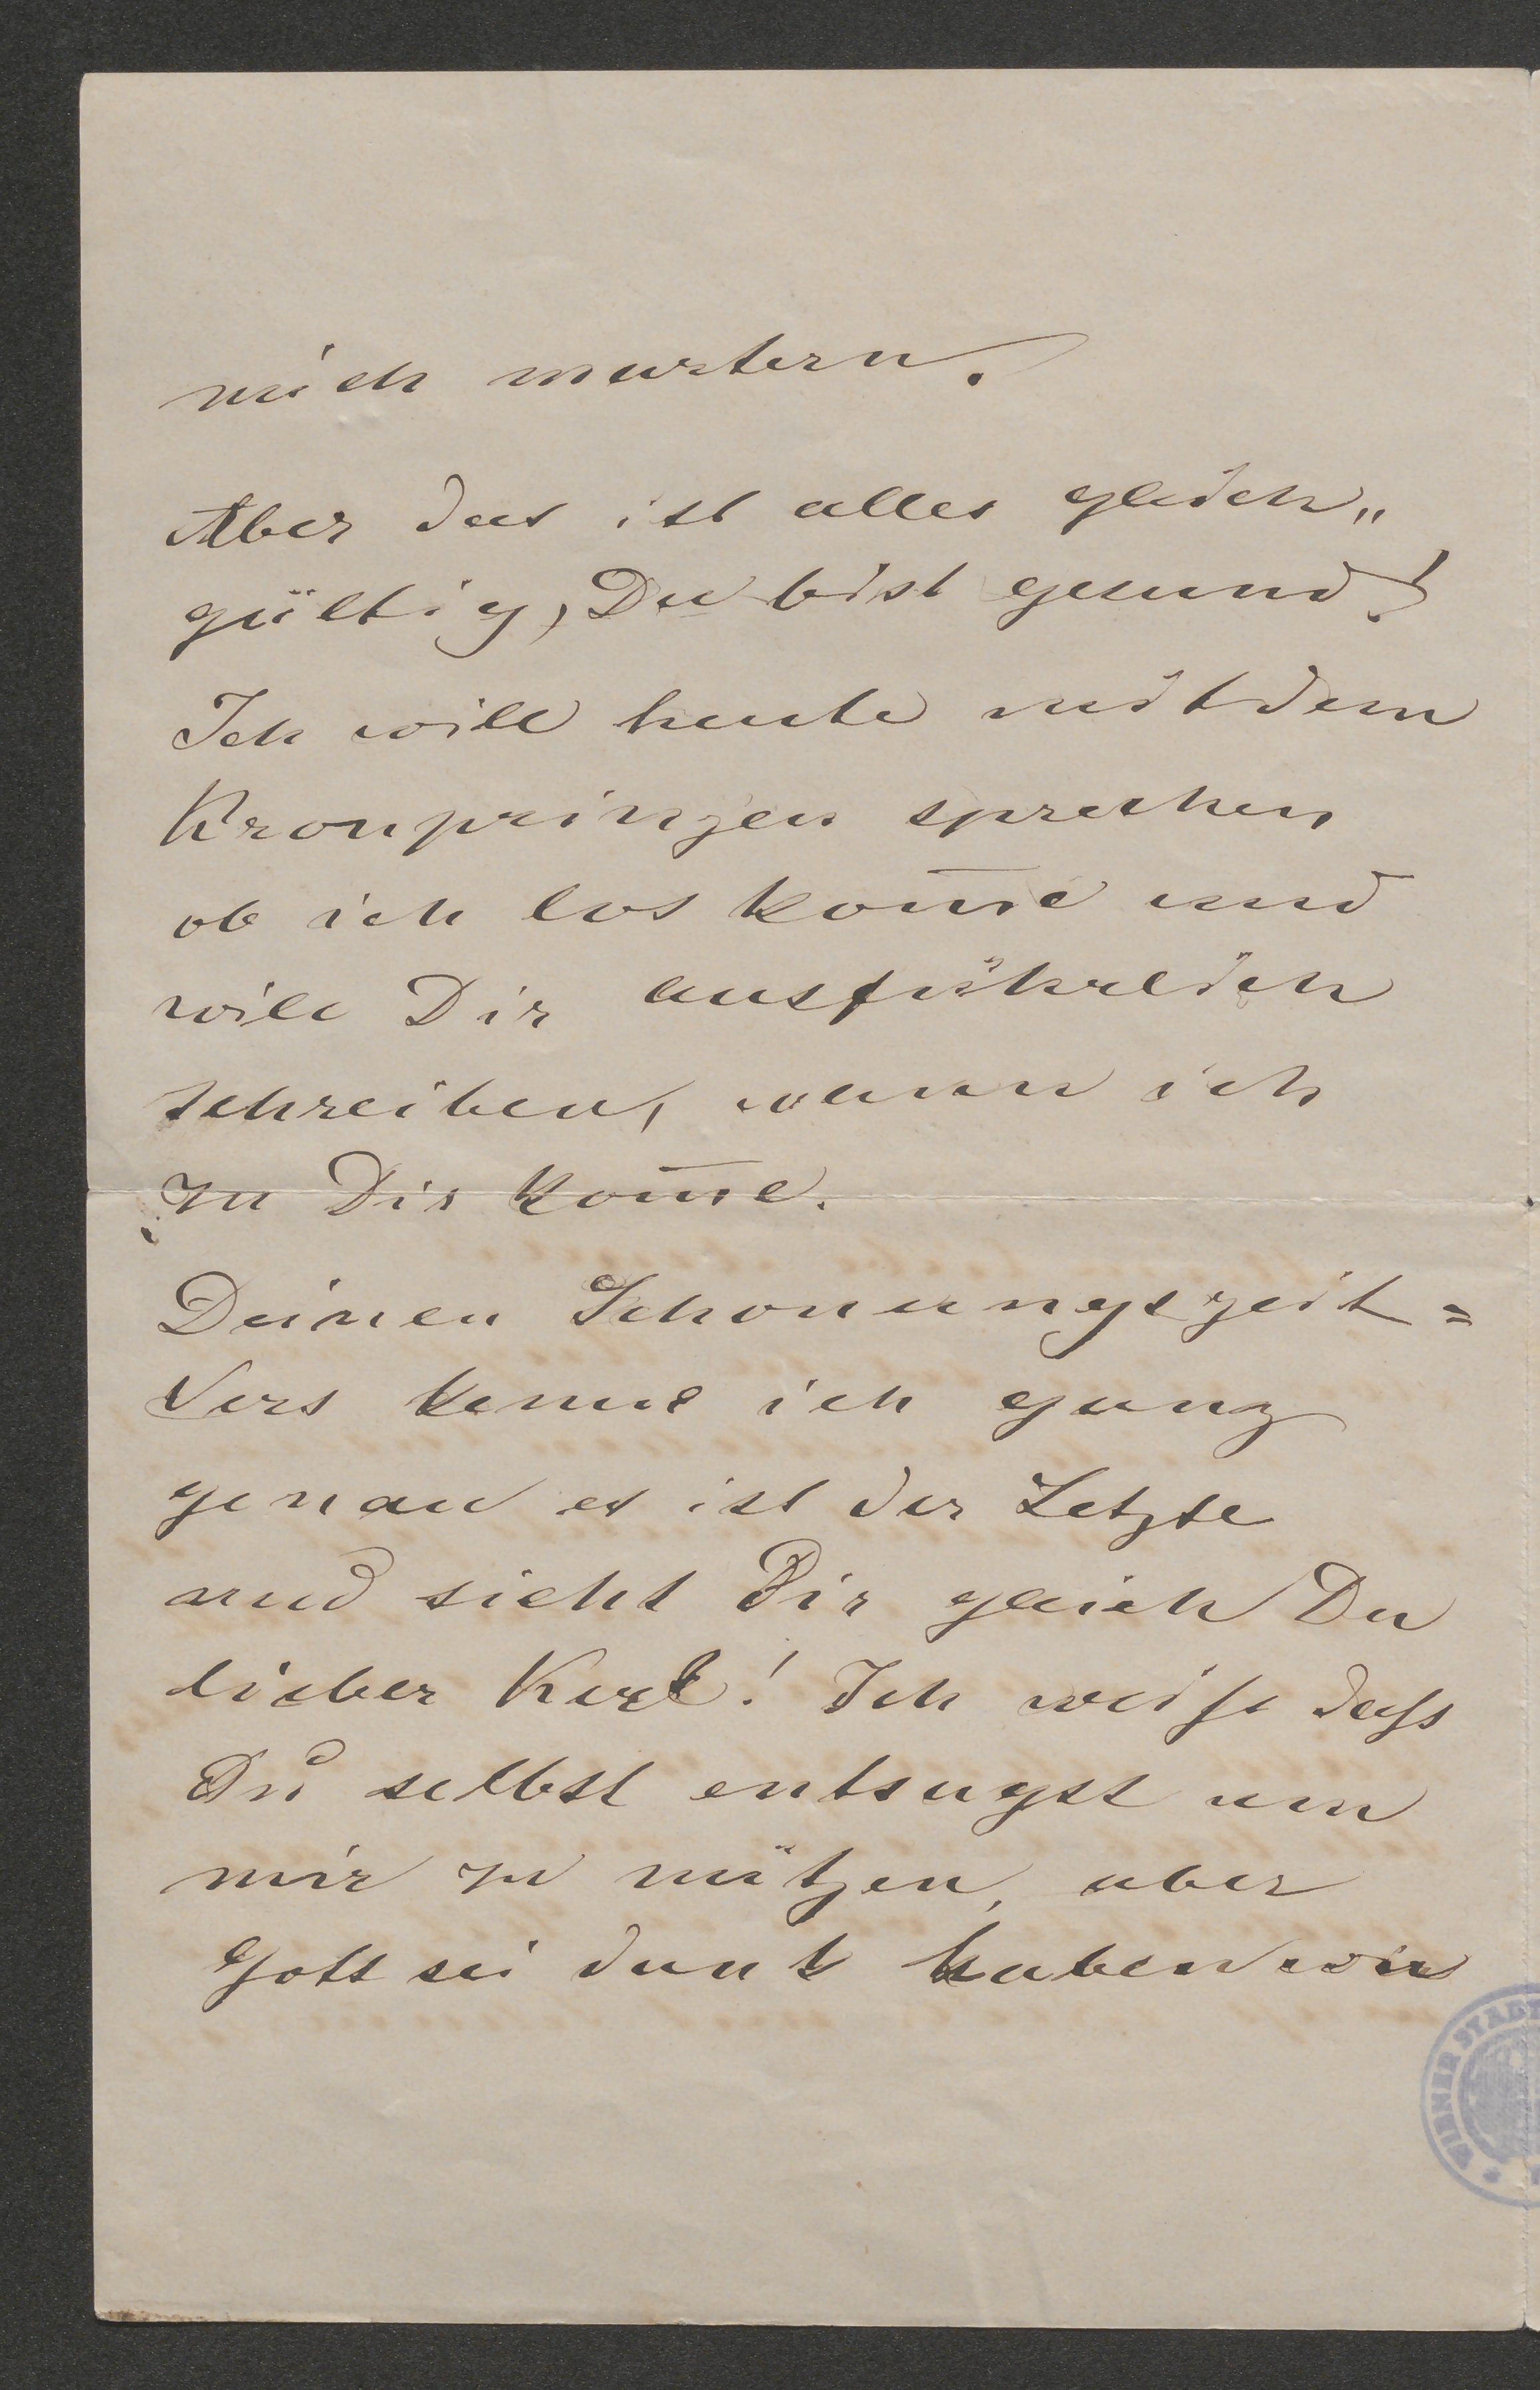 mich martern.
Aber das ist alles gleich„
gültig, Du bist gesund!
Ich will heute mit dem
Kronprinzen sprechen
ob ich los kom̄e und
will Dir ausführlich
schreiben, wann ich
zu Dir kom̄e.
Deinen Schonungszeit=
Vers kenne ich ganz
genau es ist der Letzte
und sieht Dir gleich Du
lieber Kerl! Ich weiſs daſs
Du selbst entsagst um
mir zu nützen, aber
Gott sei dank haben wir
WIENER STADT